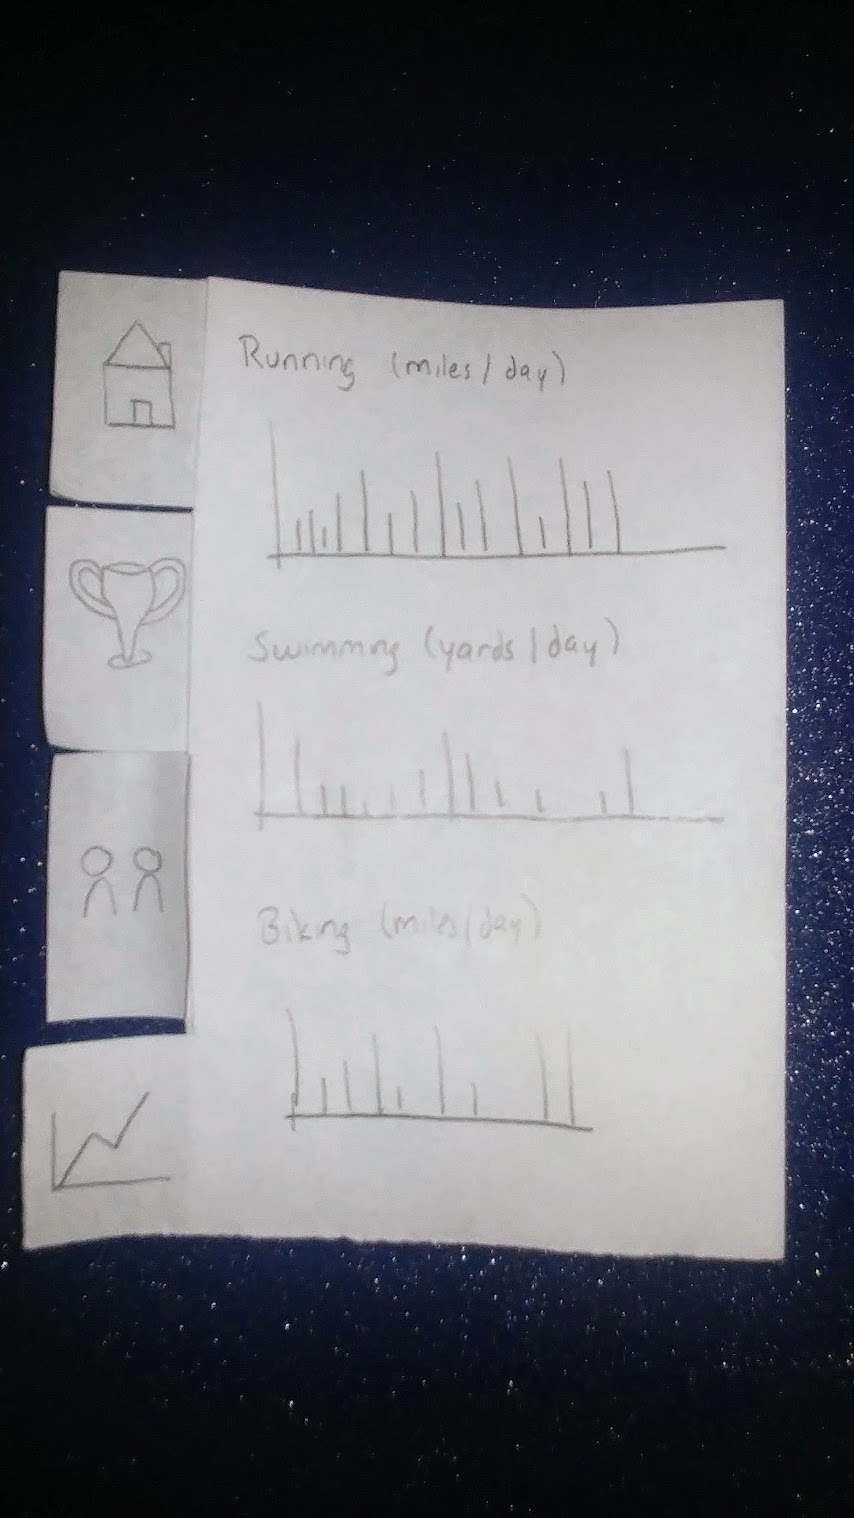 Running (miles/day)
Swimming (yards/day)
Biking (miles/day)